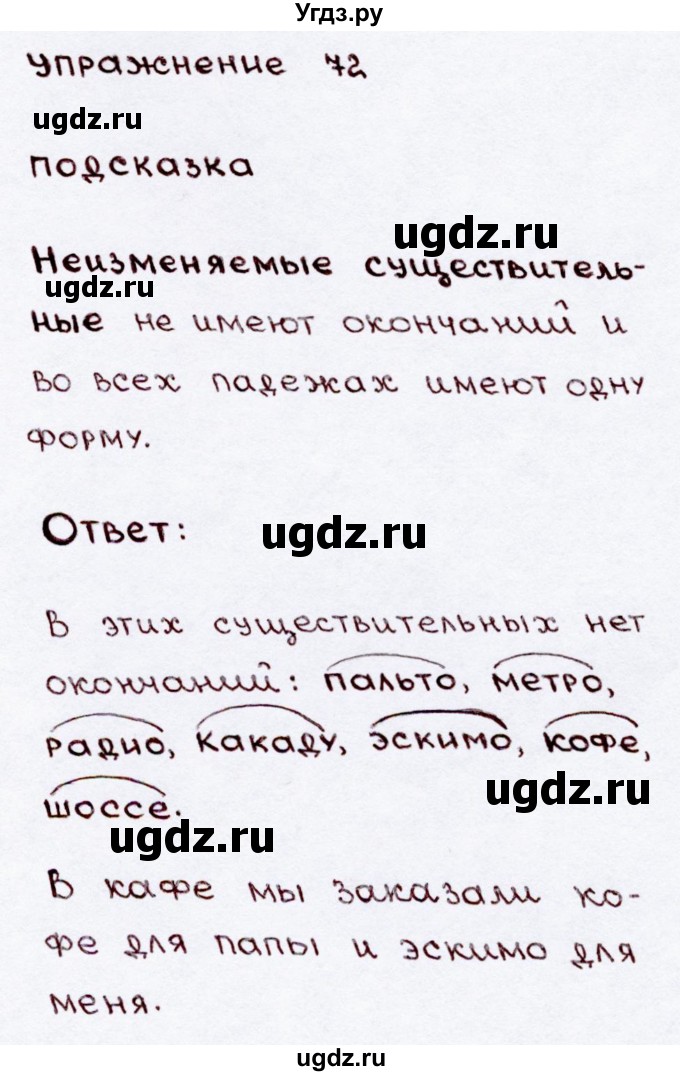 Угдз.ру
упражнение 72
ugdz.ru
подсказка
ugdz.ru
Неизменяемые существитель-
ugdz.ru
ные не имеют окончаний и
во всех падежах имеют одну
форму.
Ответ:
ugdz.ru
В этих существительных нет
окончаний: пальто, метро,
радио, какаду, эскимо, кофе,
ugdz.ru
шоссе.
ugdz.ru
В кафе мы заказали ко-
фе для папы и эскимо для
меня.
ugdz.ru